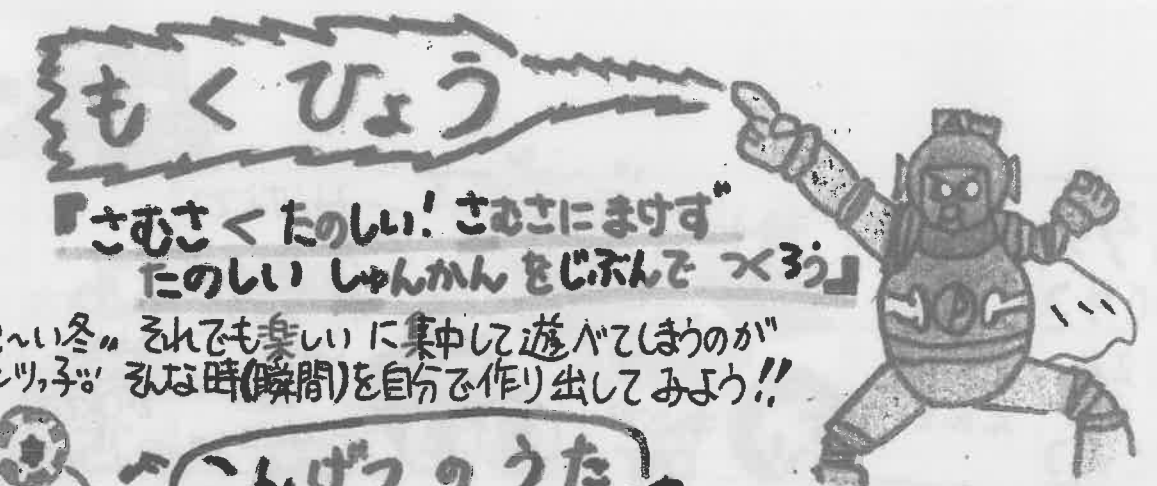 もくひょう
『さむさ < たのしい! さむさに まけず
たのしい しゅんかん を じぶんで つくろう』
〜い冬〟 それでも楽しい に 集中して 遊べてしまうのが
ッ子。〟 そんな時(瞬間)を自分で作り出して みよう!!
こんげつ の うた